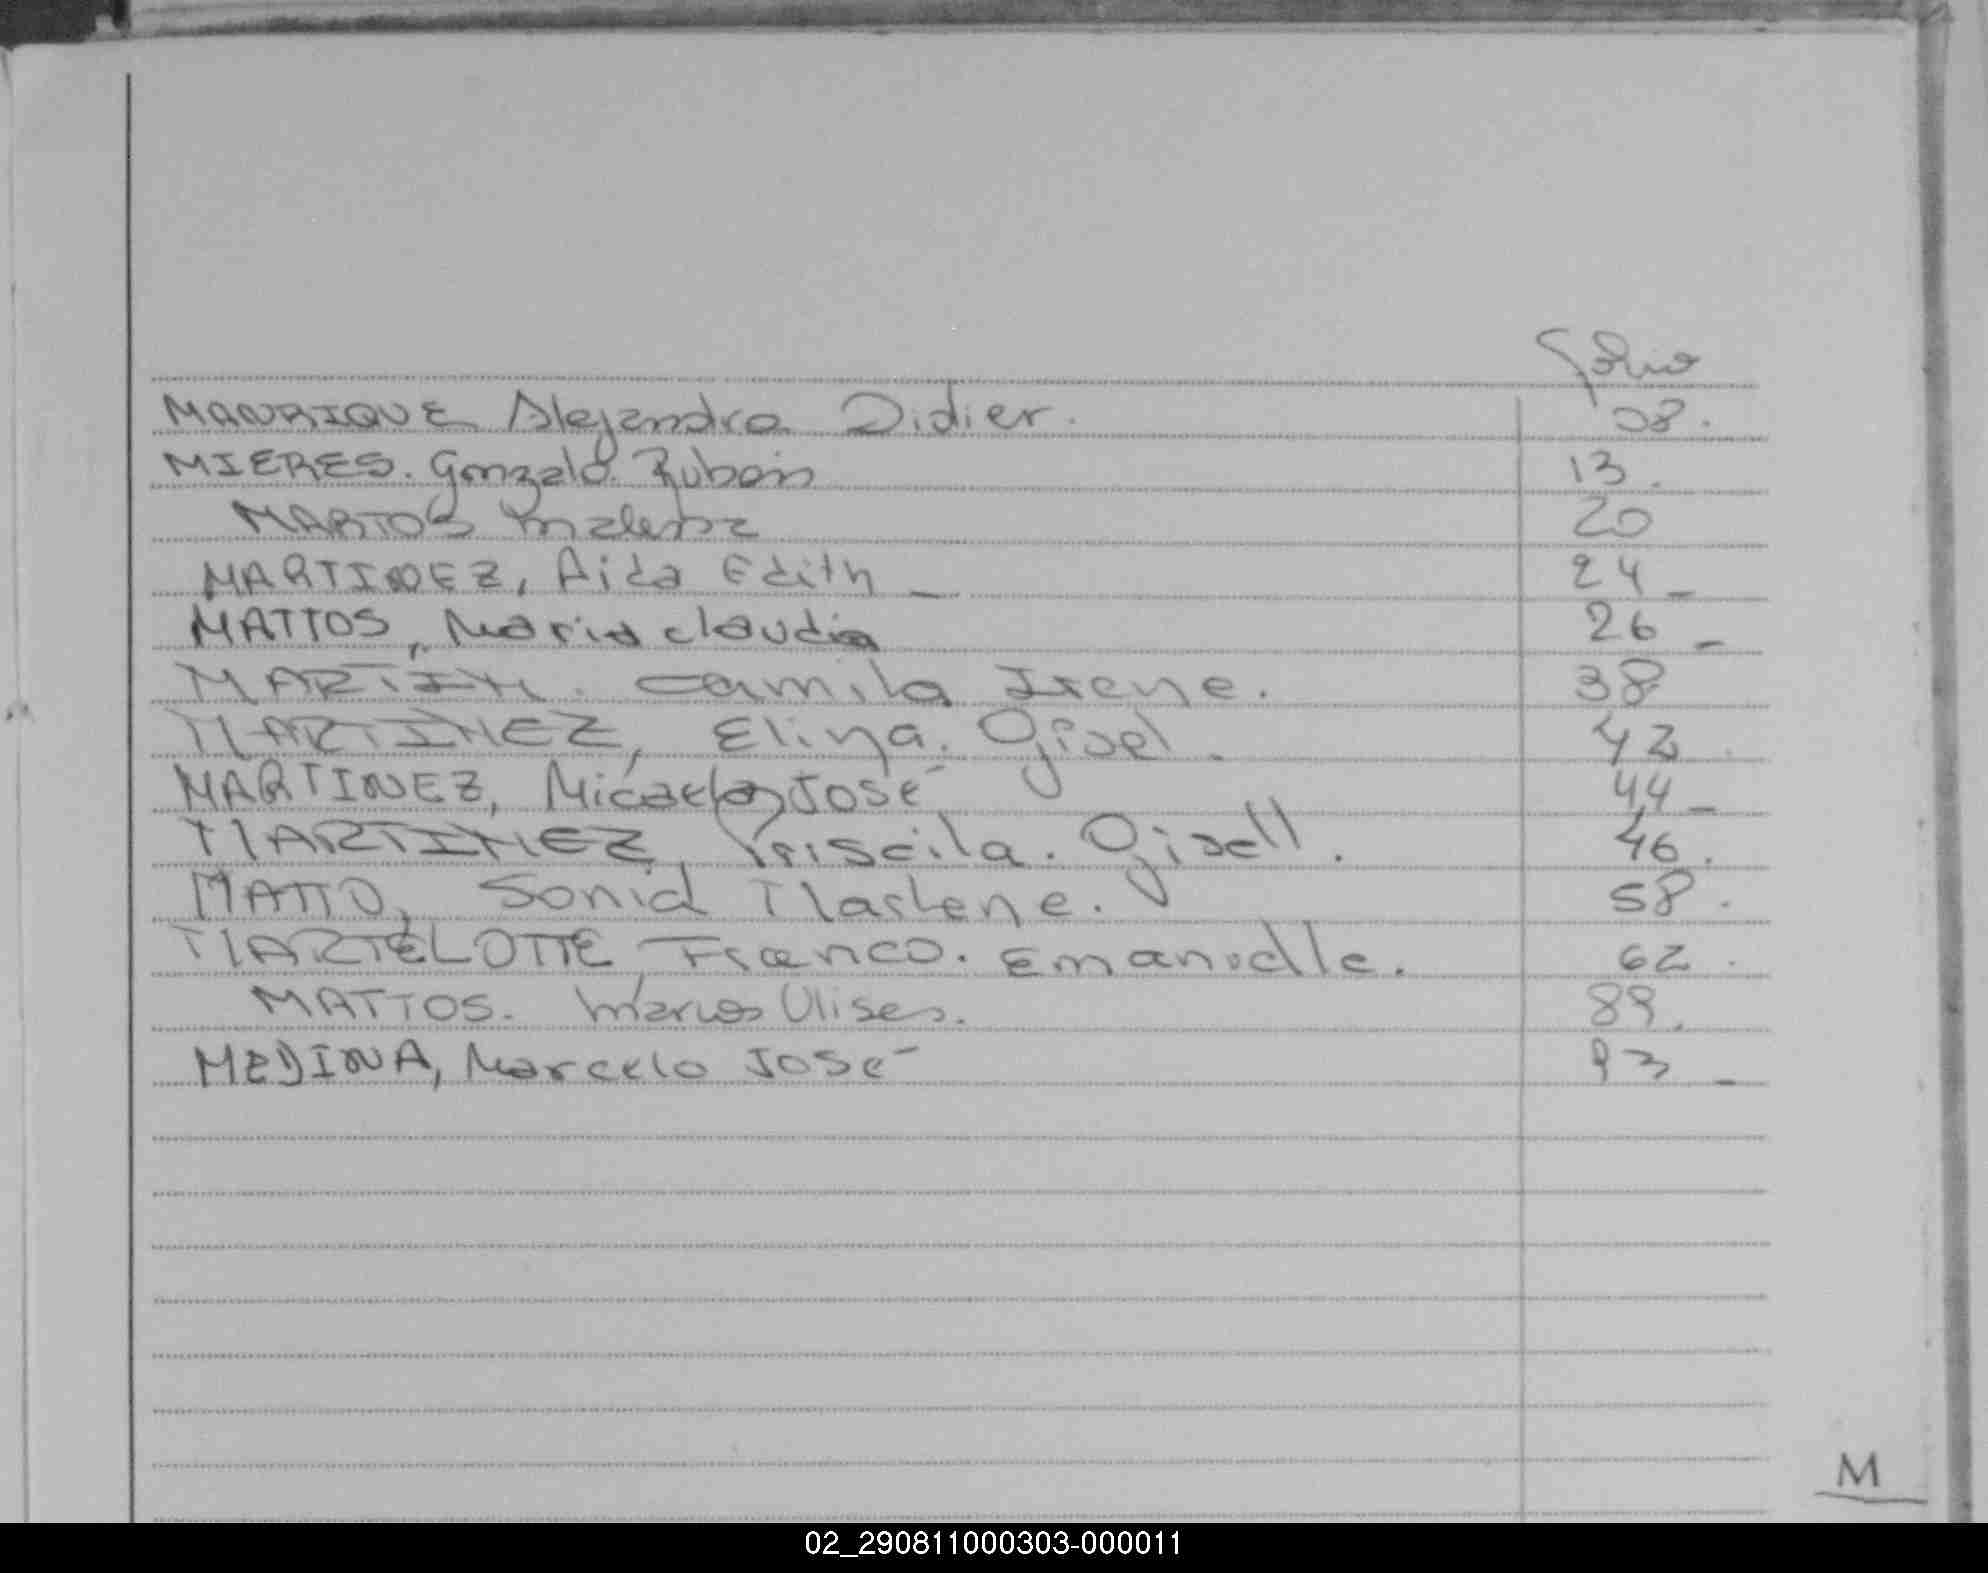 Folio
MANRIQUE Alejandro Didier. 08.
MIERES. Gonzalo Rubén 13.
MARTOS Malena 20
MARTINEZ, Aida Edith _ 24 _
MATTOS, Maria Claudia 26 _
MARTÍN. Camila Irene. 38
MARTINEZ, Elina. Gisel. 42
MARTINEZ, Micaela José 44 _
MARTINEZ, Priscila. Gisell. 46.
MATTO, Sonia Marlene. 58.
MARTELOTTE, Franco. Emanuelle. 62.
MATTOS. Marcos Ulises. 89.
MEDINA, Marcelo José 93 _
M
02_290811000303-000011